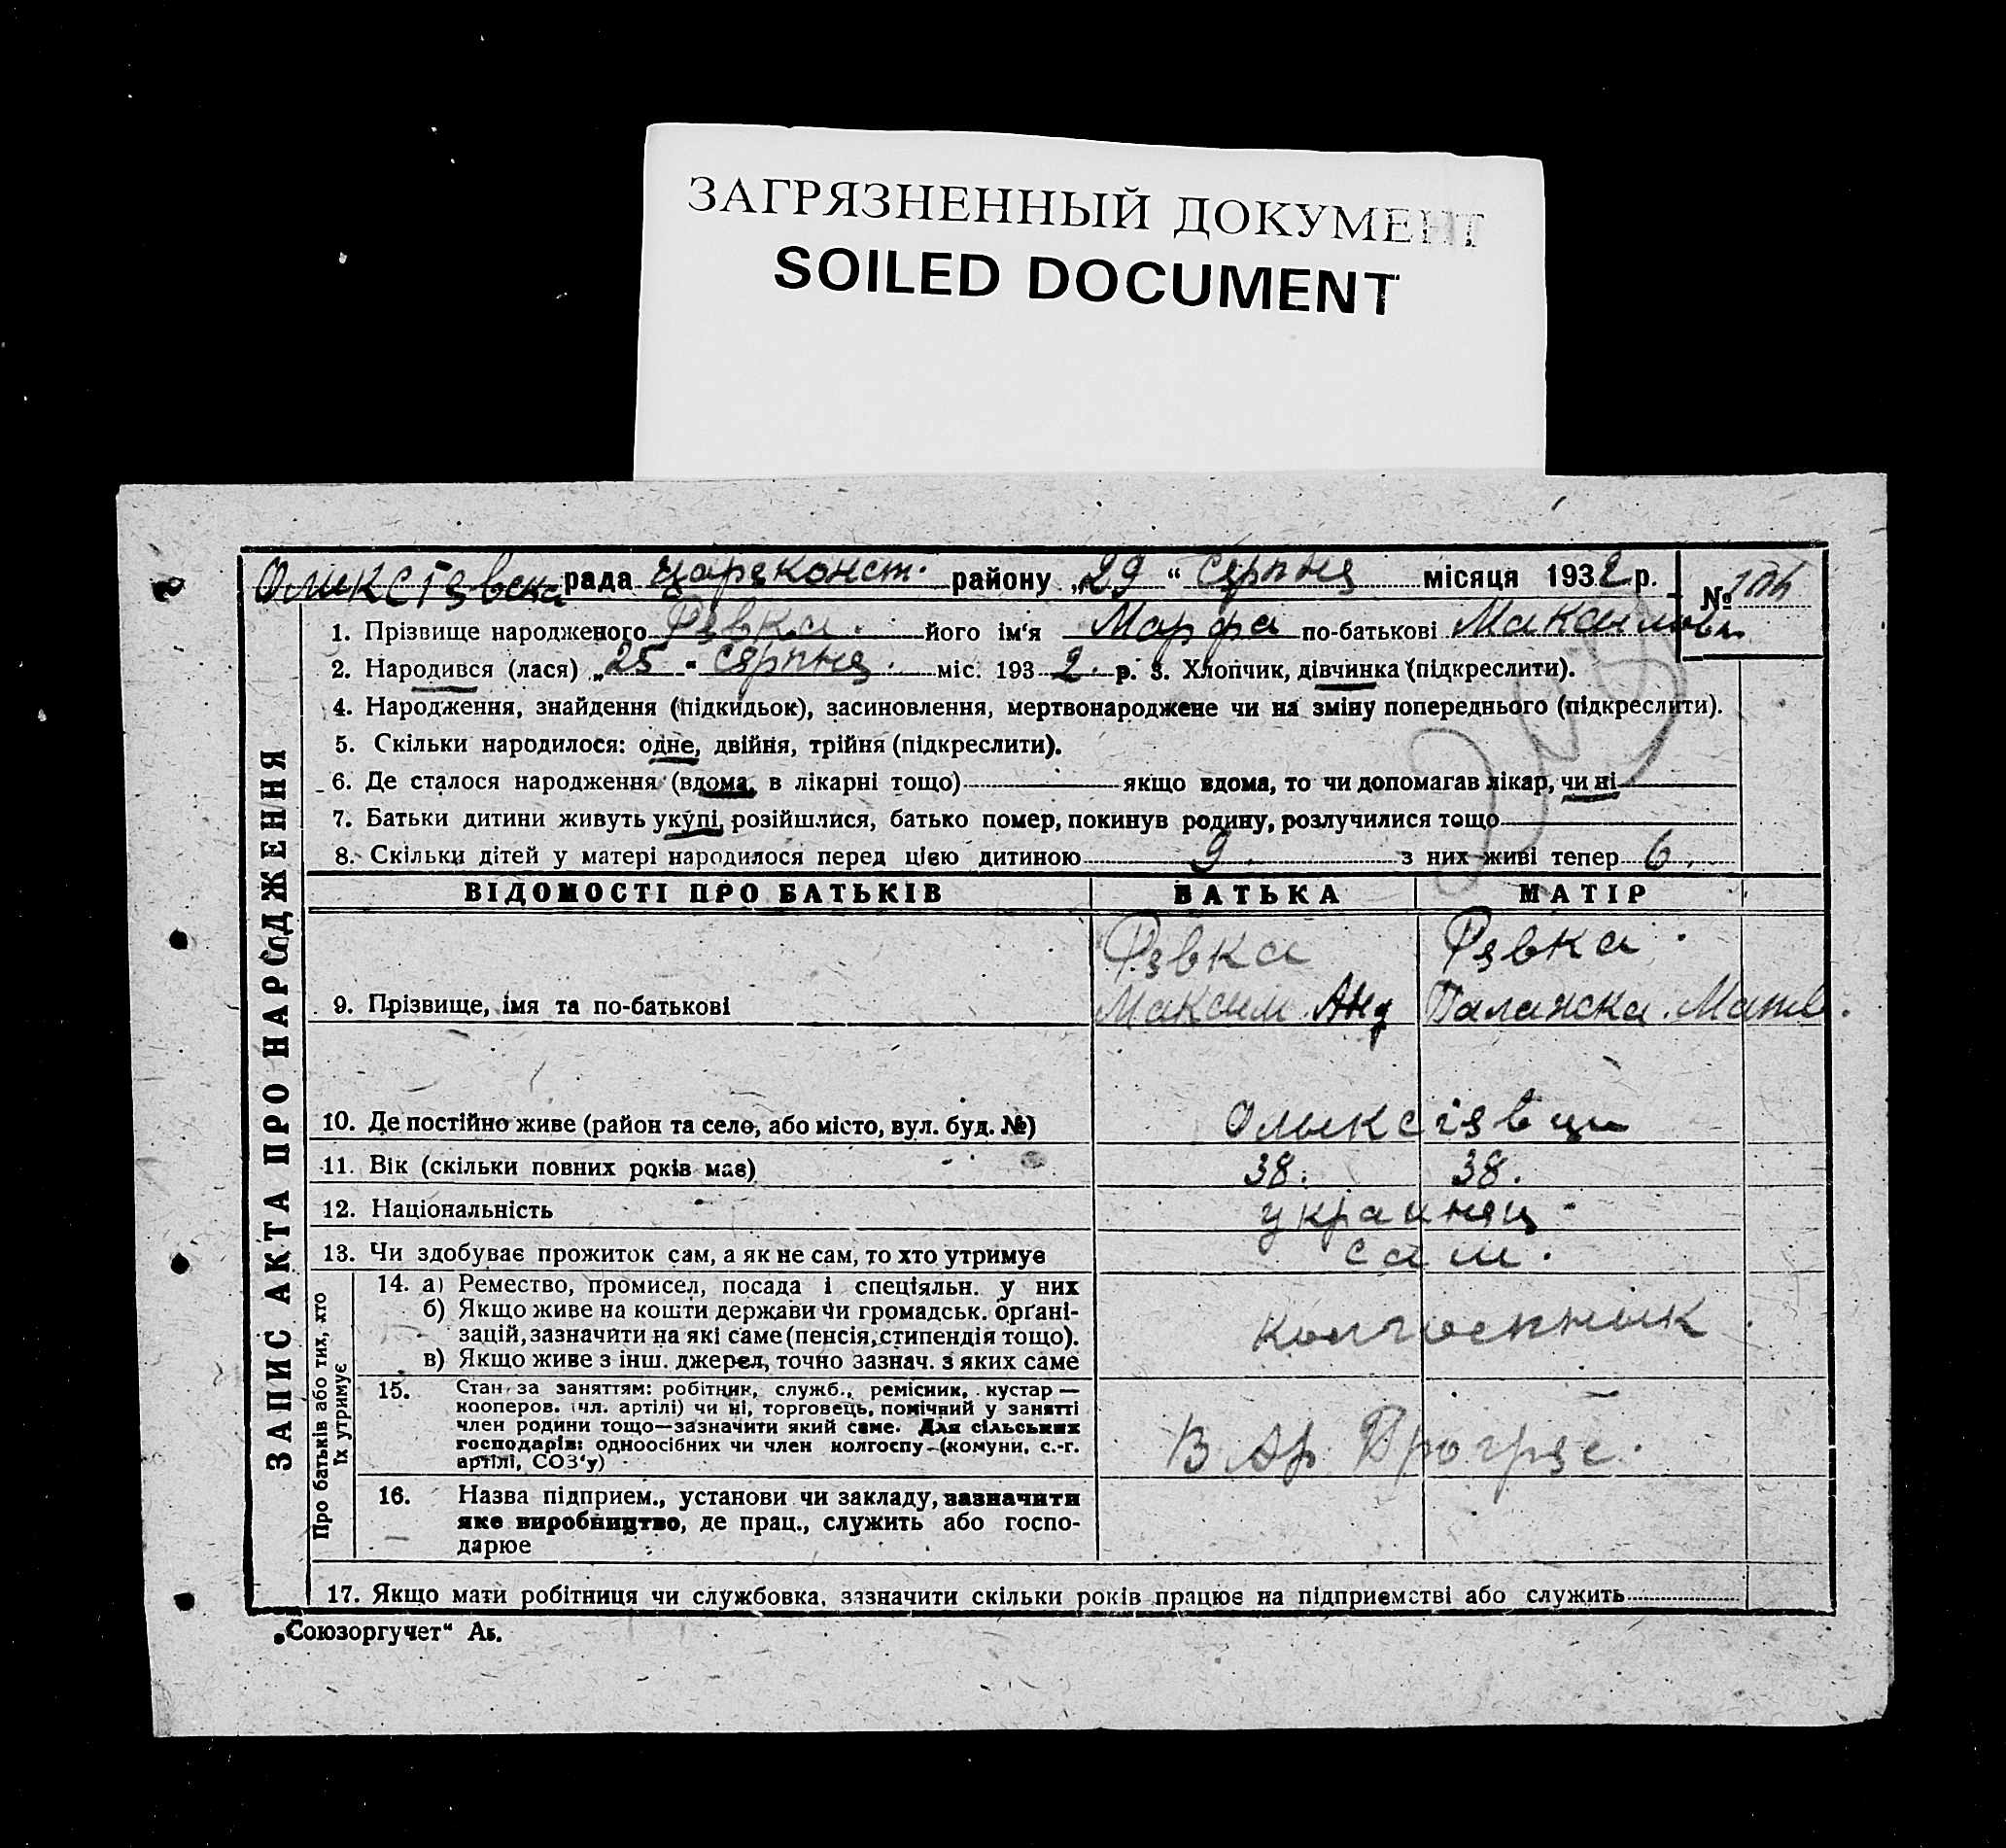 ЗАГРЯЗНЕННЫЙ ДОКУМЕНТ
SOILED DOCUMENT
рада Царяконст. району „29“ серпня місяця 1932 р. №
1. Прізвище народженого Рєвка. його ім'я Марфа по-батькові Максимовн
2. Народився (лася) „25“ серпня. міс. 1932. р. 3. Хлопчик, дівчинка (підкреслити).
4. Народження, знайдення (підкидьок), засиновлення, мертвонароджене чи на зміну попереднього (підкреслити).
5. Скільки народилося: одне, двійня, трійня (підкреслити).
6. Де сталося народження (вдома, в лікарні тощо) якщо вдома, то чи допомагав лікар, чи ні
7. Батьки дитини живуть укупі, розійшлися, батько помер, покинув родину, розлучилися тощо
8. Скільки дітей у матері народилося перед цією дитиною 9 з них живі тепер 6.
ЗАПИС АКТА ПРО НАРОДЖЕННЯ
ВІДОМОСТІ ПРО БАТЬКІВ БАТЬКА МАТІР
Рєвка Рєвка
9. Прізвище, імя та по-батькові Максим Анд Палажка Матв.
10. Де постійно живе (район та село, або місто, вул. буд. №)
11. Вік (скільки повних років має) 38. 38.
12. Національність украинец
13. Чи здобуває прожиток сам, а як не сам, то хто утримує сам.
Про батьків або тих, хто їх утримує
14. а) Ремество, промисел, посада і спеціяльн. у них
б) Якщо живе на кошти держави чи громадськ. орґані-
зацій, зазначити на які саме (пенсія, стипендія тощо).
в) Якщо живе з інш. джерел, точно зазнач. з яких саме
колгоспнык
15. Стан за заняттям: робітник, служб., ремісник, кустар —
кооперов. (чл. артілі) чи ні, торговець, помічний у занятті
член родини тощо—зазначити який саме. Для сільських
господарів: одноосібних чи член колгоспу (комуни, с.-г.
артілі, СОЗ'у)
В Ар. Прогрес.
16. Назва підприєм., установи чи закладу, зазначити
яке виробництво, де прац., служить або госпо-
дарює
17. Якщо мати робітниця чи службовка, зазначити скільки років працює на підприємстві або служить
„Союзоргучет“ Аб.